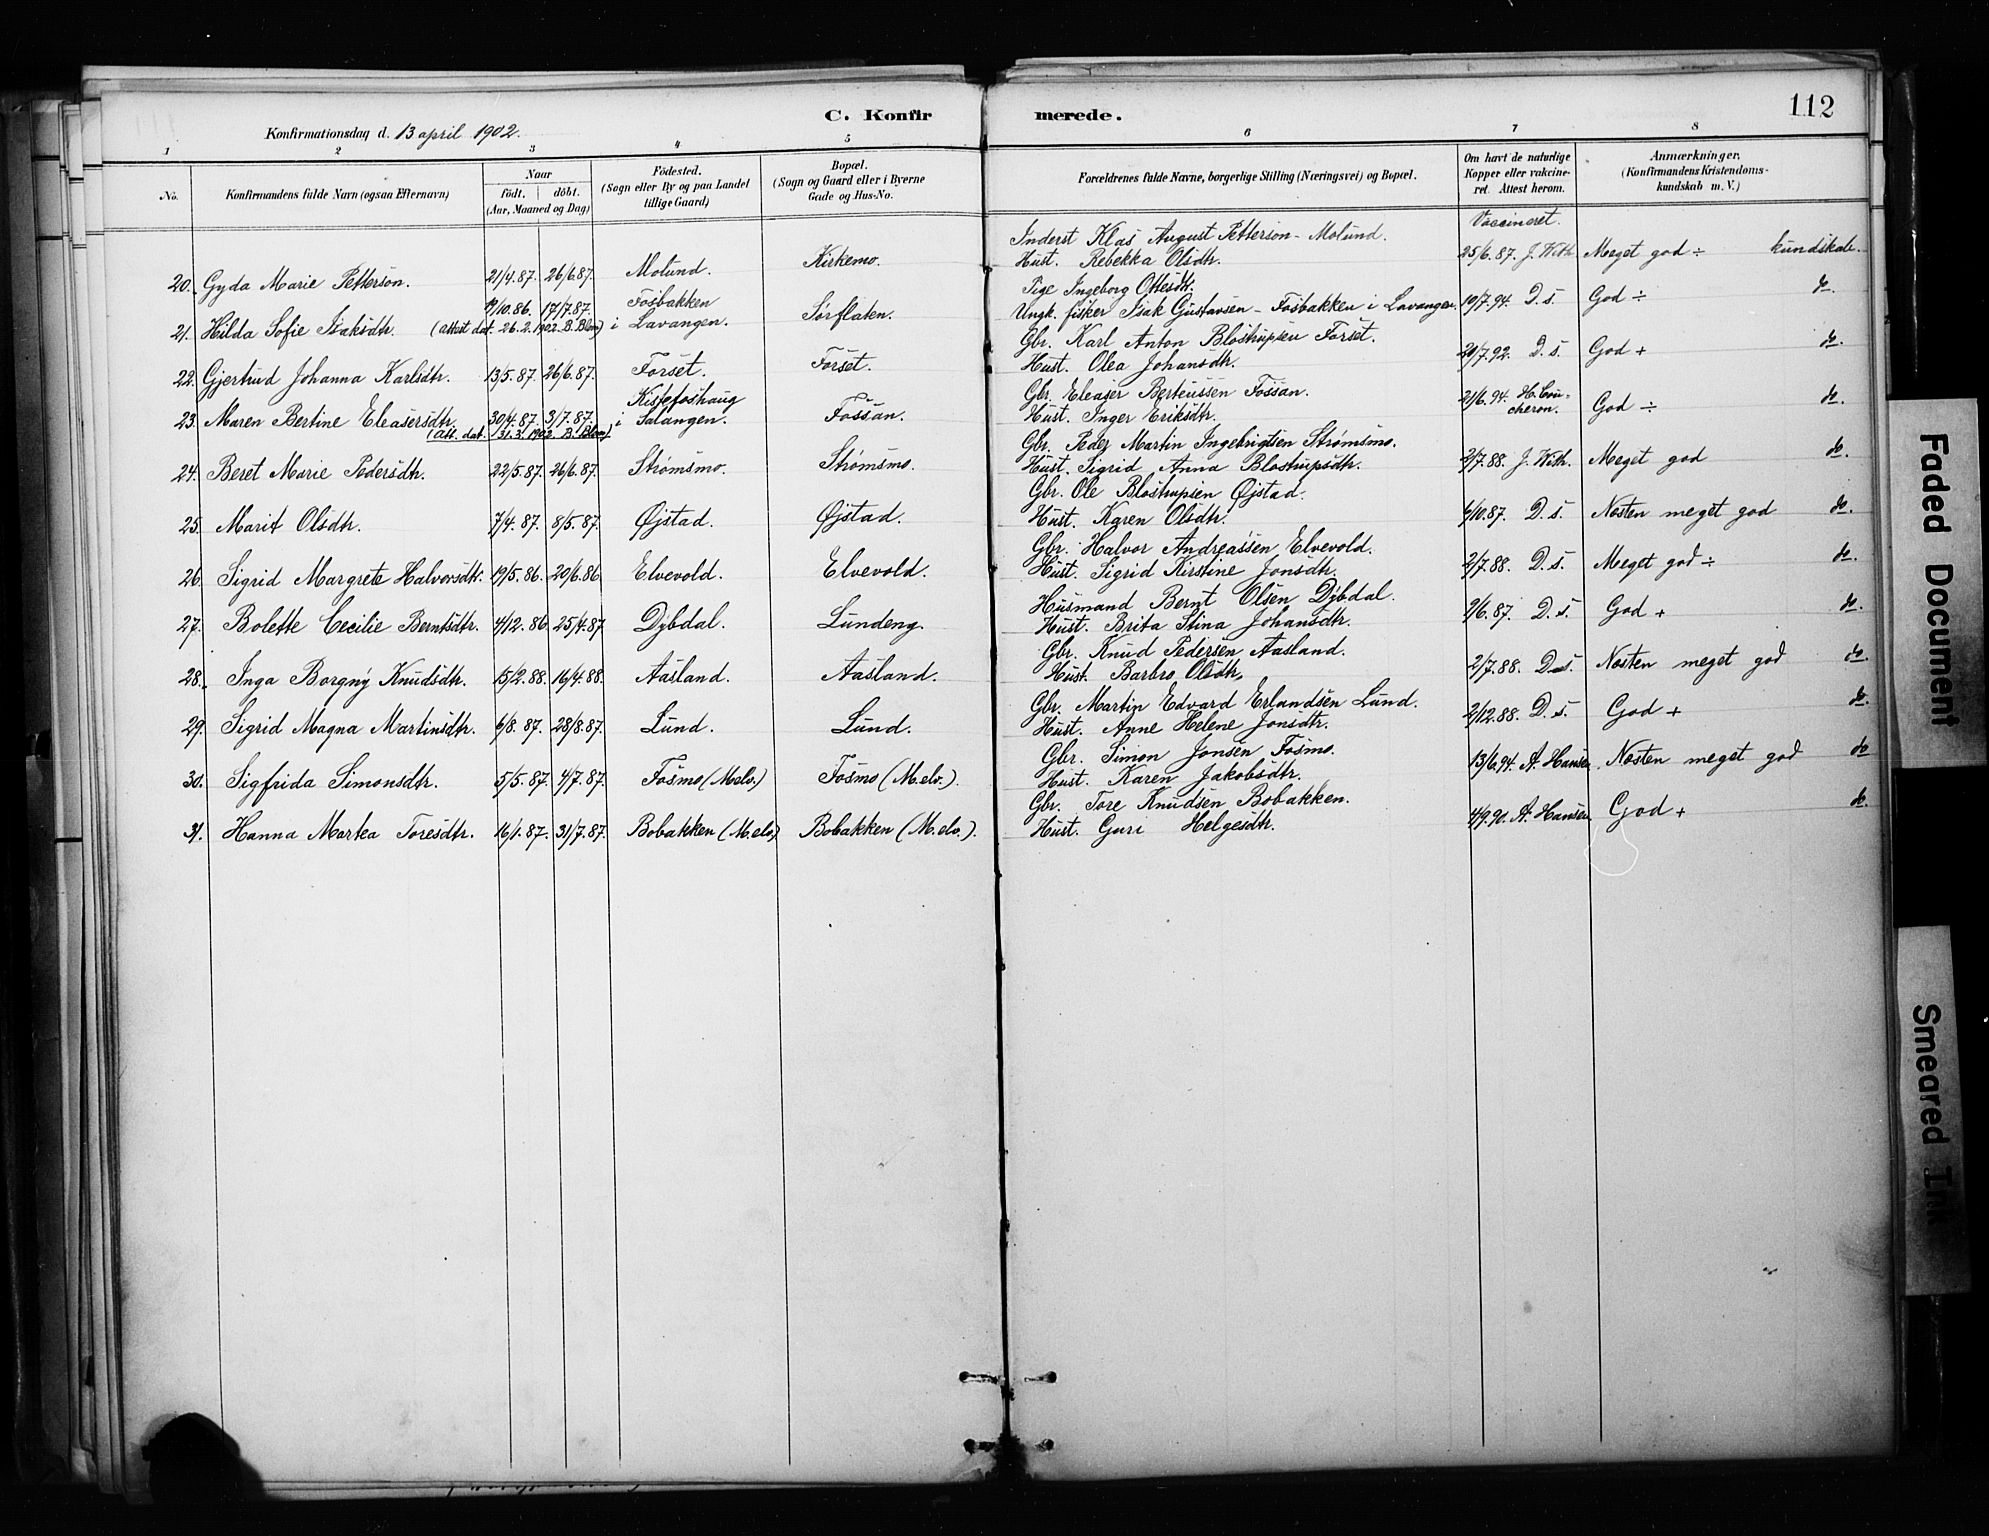 C. Konfirmerede.
112
Konfirmationsdag d. 13 april 1902.
1 2 3 4 5 6 7 8
No.
Konfirmandens fulde Navn (ogsaa Efternavn)
Naar
født. døbt.
(Aar, Maaned og Dag)
Födested.
(Sogn eller By og paa Landet
tillige Gaard)
Bopæl.
(Sogn og Gaard eller i Byerne
Gade og Hus-No.
Forældrenes fulde Navne, borgerlige Stilling (Næringsvei) og Bopæl.
Om havt de naturlige
Kopper eller vakcine-
ret. Attest herom.
Anmærkninger.
(Konfirmandens Kristendoms-
kundskab m. V.)
Vaccineret.
Inderst Klas August Petterson - Molund.
20. Gyda Marie Petterson. 21/4.87. 26/6.87. Molund. Kirkemo. Hust. Rebekka Olsdtr. 25/6.87. J. With Meget god ÷ kundskab.
Pige Ingeborg Ottesdtr.
21. Hilda Sofie Isaksdtr. 19/10.86. 17/7.87. Fosbakken Sørflaten. Ungk. fisker Isak Gustavsen - Fosbakken i Lavangen. 10/7.94. D. s. God ÷ do.
(attest dat. 26.2.1902. B. Blom) i Lavangen.
Gbr. Karl Anton Blostrupsen Forset.
22. Gjertrud Johanna Karlsdtr. 13/5.87. 26/6.87. Forset. Forset. Hust. Olea Johansdtr. 20/7.92. D. s. God + do.
Kistefoshaug Gbr. Eleaser Berteussen Fossan.
23. Maren Bertine Eleasersdtr. 30/4.87. 3/7.87. i Salangen. Fossan. Hust. Inger Eriksdtr. 21/6.94. H. Bou-
cheron. God ÷ do.
(Att. dat. 31.3.1902. B. Blom)
Gbr. Peder Martin Ingebrigtsen Strømsmo.
24. Beret Marie Pedersdtr. 22/5.87. 26/6.87. Strømsmo. Strømsmo. Hust. Sigrid Anna Blostrupsdtr. 2/7.88. J. With. Meget god do.
Gbr. Ole Blostrupsen Øjstad.
25. Marit Olsdtr. 7/4.87. 8/5.87. Øjstad. Øjstad. Hust. Karen Olsdtr. 6/10.87. D. s. Næsten meget god do.
Gbr. Halvor Andreassen Elvevold.
26. Sigrid Margrete Halvorsdtr. 19/5.86. 20/6.86 Elvevold. Elvevold. Hust. Sigrid Kirstine Jonsdtr. 2/7.88. D. s. Meget god ÷ do.
Husmand Bernt Olsen Dybdal.
27. Bolette Cecilie Berntsdtr. 4/12.86. 25/4.87 Dybdal. Lundeng. Hust. Brita Stina Johansdtr. 2/6.87. D. s. God + do.
Gbr. Knud Pedersen Aasland.
28. Inga Borgny Knudsdtr. 15/2.88. 16/4.88. Aasland. Aasland. Hust. Barbro Olsdtr. 2/7.88. D. s. Næsten meget god do.
Gbr. Martin Edvard Erlandsen Lund.
29. Sigrid Magna Martinsdtr. 6/8.87. 28/8.87. Lund. Lund. Hust. Anne Helene Jonsdtr. 2/12.88. D. s. God + do.
Gbr. Simon Jonsen Fosmo.
30. Sigfrida Simonsdtr. 5/5.87. 4/7.87. Fosmo (M.elv.) Fosmo (M.elv.). Hust. Karen Jakobsdtr. 13/6.94. A. Hansen. Næsten meget god do
Gbr. Tore Knudsen Bobakken.
31. Hanna Martea Toresdtr. 16/1.87. 31/7.87. Bobakken (M.elv) Bobakken (M.elv.). Hust. Guri Helgesdtr. 4/9.90. A. Hansen God + do.
Faded Document
Smeared Ink